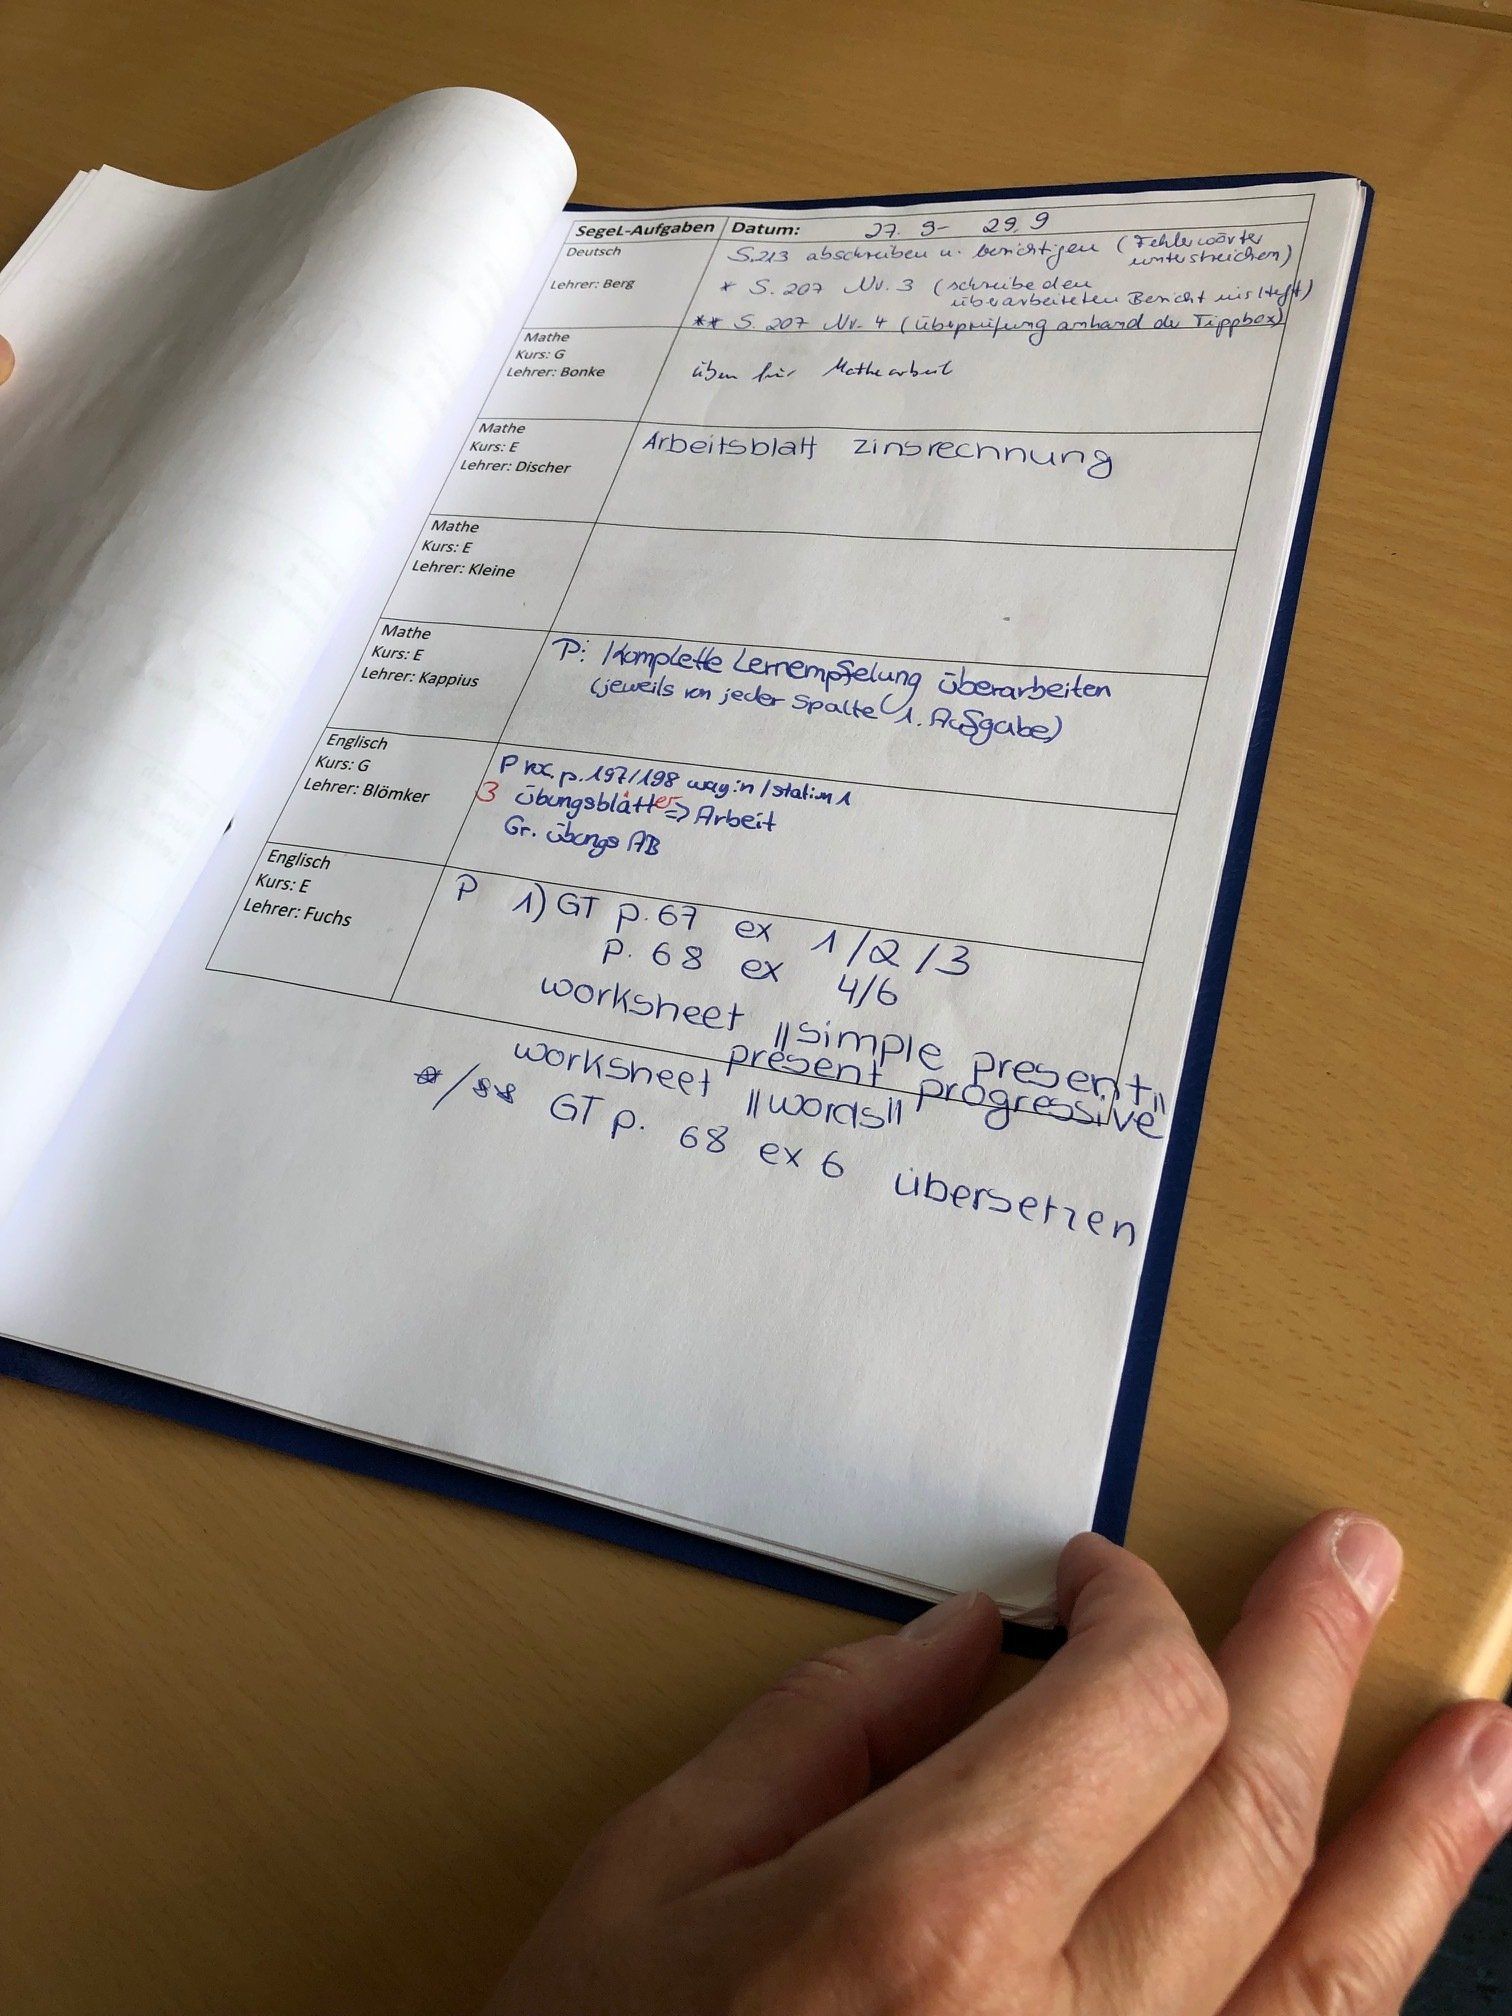 SegeL-Aufgaben Datum: 27. 9- 29.9
Deutsch
Lehrer: Berg
S.213 abschreiben u. berichtigen (Fehlerwörter
unterstreichen)
* S. 207 Nr. 3 (schreibe den
überarbeiteten Bericht ins Heft)
** S. 207 Nr. 4 (Überprüfung anhand der Tippbox)
Mathe
Kurs: G
Lehrer: Bonke
üben für Mathearbeit
Mathe
Kurs: E
Lehrer: Discher
Arbeitsblatt Zinsrechnung
Mathe
Kurs: E
Lehrer: Kleine
Mathe
Kurs: E
Lehrer: Kappius
P: Komplette Lernempfelung überarbeiten
(jeweils von jeder Spalte 1. Aufgabe)
Englisch
Kurs: G
Lehrer: Blömker
Voc. p. 197/198 way in / station 1
3 Übungsblätter => Arbeit
Gr. Übungs AB
Englisch
Kurs: E
Lehrer: Fuchs
P 1) GT p. 67 ex 1/2/3
p. 68 ex 4/6
worksheet "simple present"
present progressive
worksheet "words"
*/** GT p. 68 ex 6 übersetzen